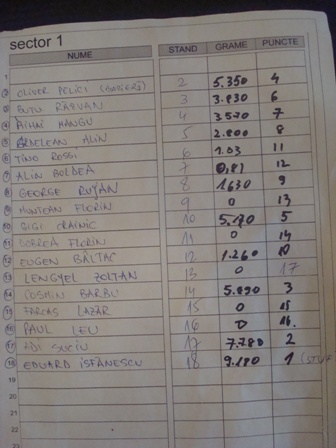 sector 1
NUME STAND GRAME PUNCTE
1
2 OLIVER PELICI 2 5.350 4
3 BUTU RĂZVAN 3 3.830 6
4 MIHAI MANGU 4 3.570 7
5 ARDELEAN ALIN 5 2.800 8
6 TINO ROSSI 6 1.03 11
7 ALIN BOLDEA 7 0,81 12
8 GEORGE RUȘAN 8 1.630 9
9 MUNTEAN FLORIN 9 0 13
10 GIGI CRAINIC 10 5.170 5
11 DOBREA FLORIN 11 0 14
12 EUGEN BĂLTAC 12 1.260 10
13 LENGYEL ZOLTAN 13 0 17
14 COSMIN BARBU 14 5.490 3
15 FARCAȘ LAZĂR 15 0 15
16 PAUL LEU 16 0 16.
17 ADI SUCIU 17 7.780 2
18 EDUARD ISFĂNESCU 18 9.180 1
19
20
21
22
23